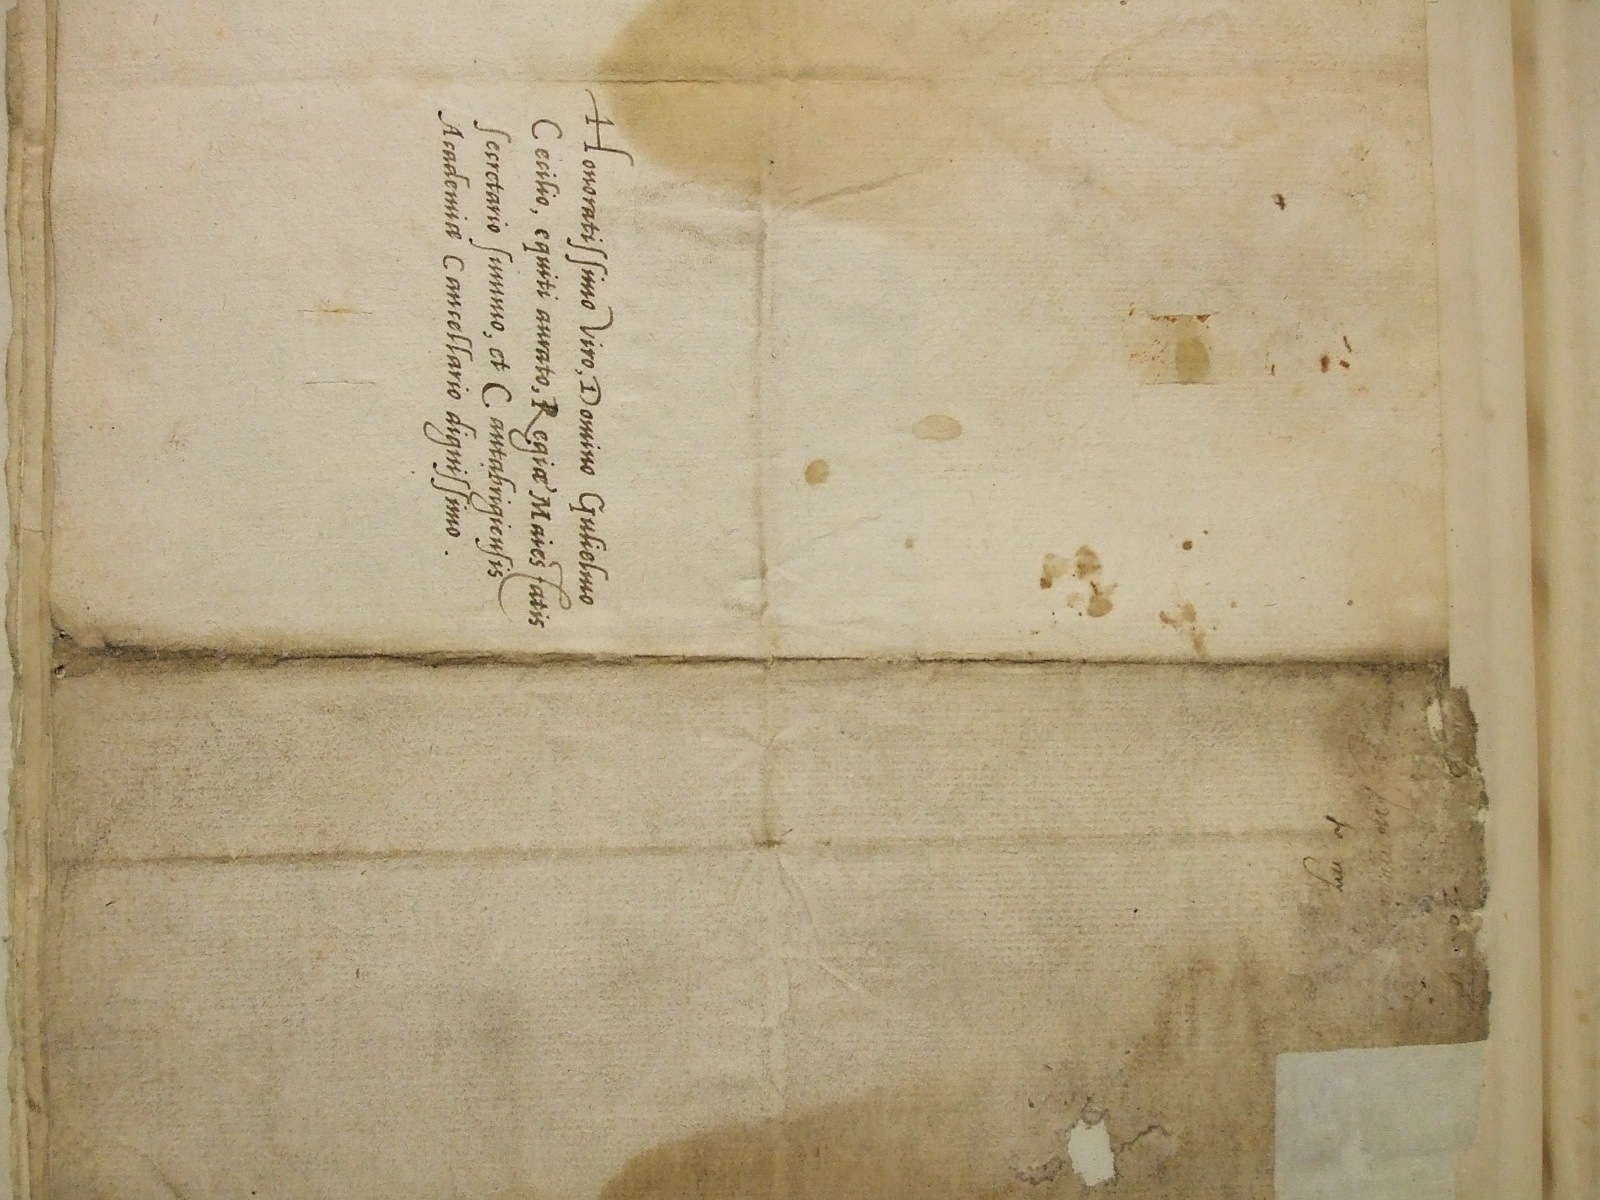 Honoratissimo Viro, Domino Gulielmo
Cecilio, equiti aurato, Regiæ Maiestatis
Secretario summo, et Cantabrigiensis
Academiæ Cancellario dignissimo.